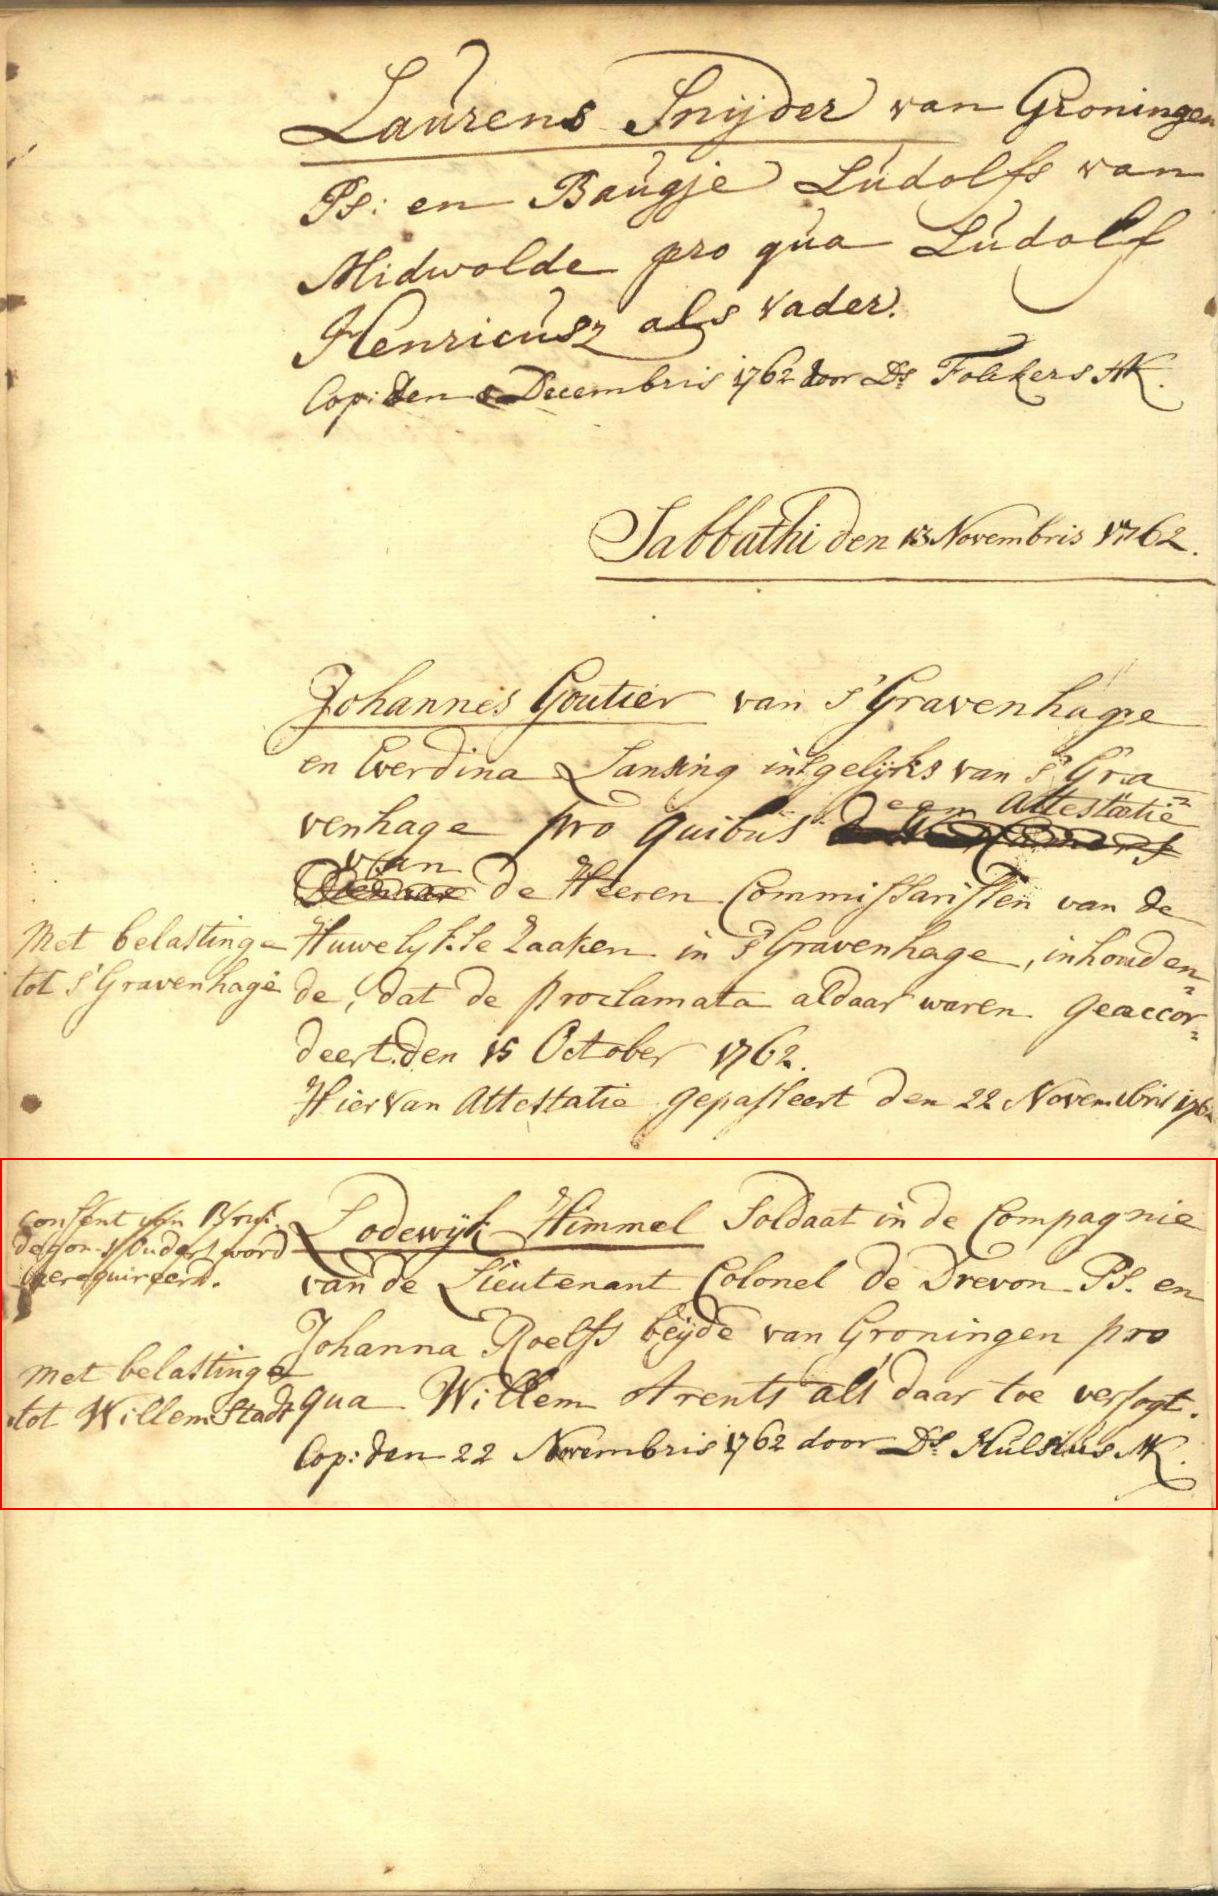 Laurens Snyder van Groningen
Ps: en Baugje Ludolfs van
Midwolde pro qua Ludolf
Henricusz als vader.
Cop: den Decembris 1762 door Ds Folckers AK.
Sabbathi den 13 Novembris 1762.
Johannes Goutier van s'Gravenhage
en Everdina Lansing insgelyks van s'Gra
venhage pro quibus een Attestatie
van de Heeren Commissarissen van de
Met belastinge
tot s'Gravenhage
Huwelykse Zaaken in s'Gravenhage, inhouden=
de, dat de proclamata aldaar waren geaccor=
deert den 15 October 1762.
Hier van Attestatie gepasseert den 22 Novembris 1762
Consent van Brui
degoms Ouders word
gerequireerd.
Lodewyk Himmel Soldaat in de Compagnie
van de Lieutenant Colonel de Drevon Ps. en
Johanna Roelfs beyde van Groningen pro
met belastinge
tot Willemstadt
qua Willem Arents als daar toe versogt.
Cop: den 22 Novembris 1762 door Ds Hulsius AK.